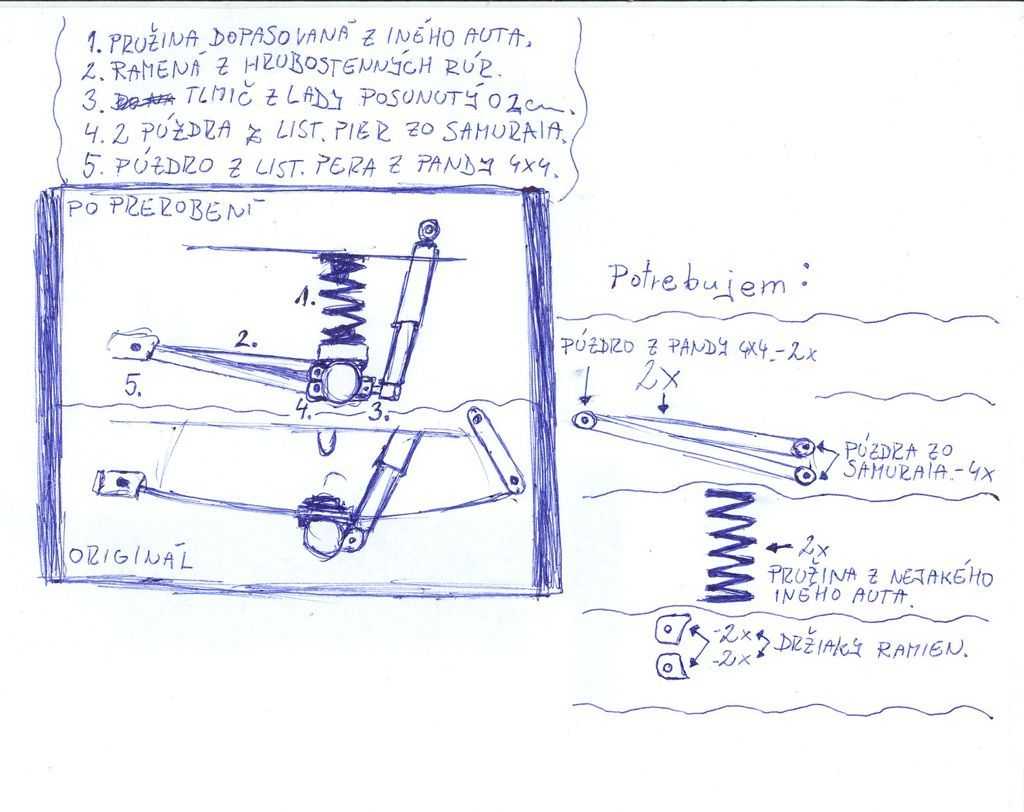 1. PRUŽINA DOPASOVANÁ Z INÉHO AUTA.
2. RAMENÁ Z HRUBOSTENNÝCH RÚR.
3. TLMIČ Z LADY POSUNUTÝ O 2cm.
4. 2 PÚZDRA Z LIST. PIER ZO SAMURAIA.
5. PÚZDRO Z LIST. PERA Z PANDY 4X4.
PO PREROBENÍ
1.
2.
5.
4.
3.
ORIGINÁL
Potrebujem:
PÚZDRO Z PANDY 4X4.-2x
2x
PÚZDRA ZO
SAMURAIA.-4x
2x
PRUŽINA Z NEJAKÉHO
INÉHO AUTA.
-2x
-2x
DRŽIAKY RAMIEN.